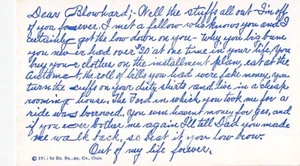 Dear Blowhard;- Well the stuff's all out- I'm off
of you forever. I met a fellow who knows you and I
certainly got the low down on you - Why you big bum
you never had over $20 at one time in your life. You
buy your clothes on the installment plan, eat at the
Automat, the roll of bills you had were fake money, you
turn the cuffs on your dirty shirts and live in a cheap
rooming house. The Ford in which you took me for a
ride was borrowed, You even haven't money for gas, and
if you ever bother me again I'll tell Dad you made
me walk back, so beat it you low brow.
Out of my life forever.
by Ex. Su. Co., Chgo.